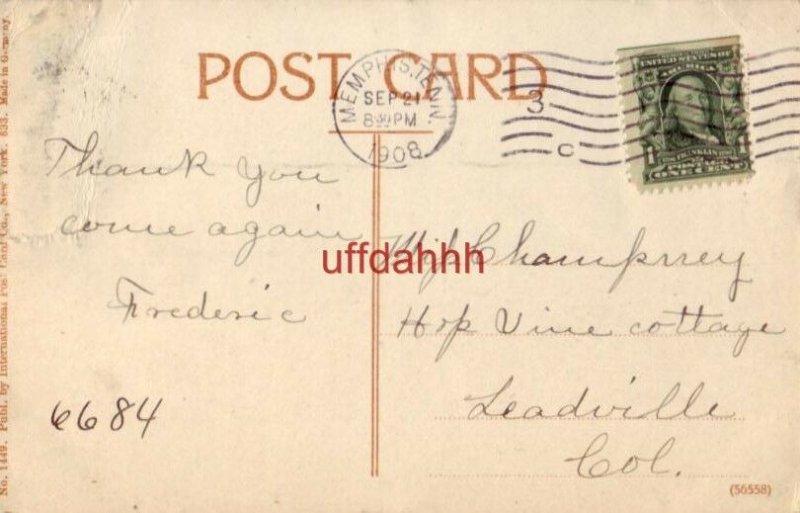 POST CARD
MEMPHIS, TENN.
SEP 21
8 30 PM
1908
3
C
UNITED STATES OF AMERICA
1 BENJ. FRANKLIN 1
POSTAGE
ONE CENT
Thank you
come again
Frederic
6684
uffdahhh
Champrrey
Hop Vine cottage
Leadville
Col.
(56558)
No. 1449. Publ. by International Post Card Co., New York. 633. Made in Germany.